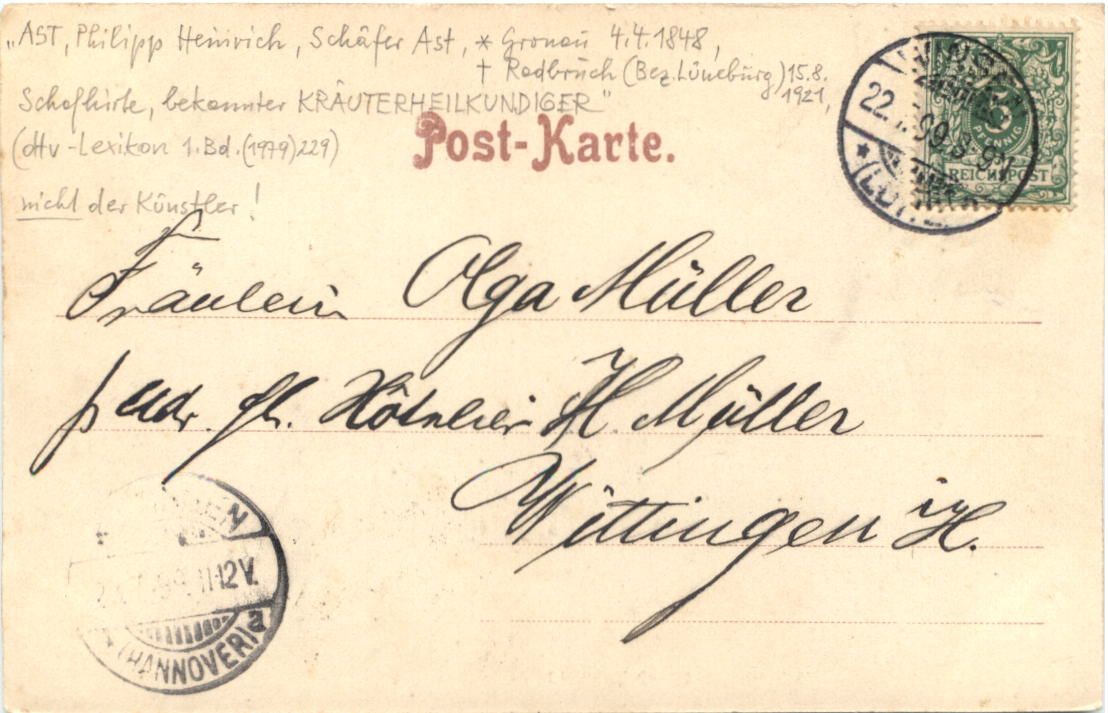 „AST, Philipp Heinrich, Schäfer Ast, * Gronau 4.4.1848,
† Radbruch (Bez. Lüneburg) 15.8.
1921,
Schafhirte, bekannter KRÄUTERHEILKUNDIGER"
(dtv-Lexikon 1. Bd. (1979) 229)
nicht der Künstler!
Post-Karte.
WINSEN
22. 99. 8-9V
(LUHE)
5
PFENNIG
REICHSPOST
Fräulein Olga Müller
p Adr. H. Müller
Wittingen i/H.
11-12V.
(HANNOVER)